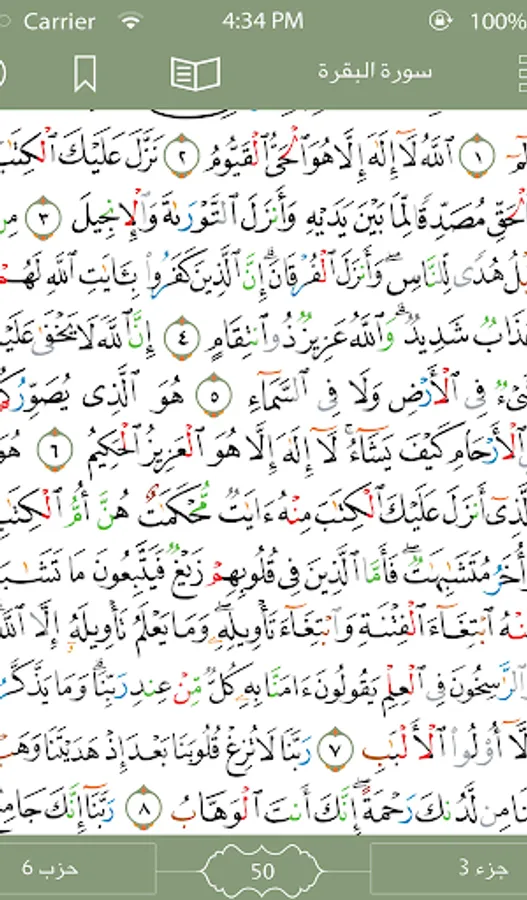 Carrier 4:34 PM 100%
سورة البقرة
الٓمٓ ١ ٱللَّهُ لَآ إِلَٰهَ إِلَّا هُوَ ٱلْحَىُّ ٱلْقَيُّومُ ٢ نَزَّلَ عَلَيْكَ ٱلْكِتَٰبَ
بِٱلْحَقِّ مُصَدِّقًا لِّمَا بَيْنَ يَدَيْهِ وَأَنزَلَ ٱلتَّوْرَىٰةَ وَٱلْإِنجِيلَ ٣ مِن
قَبْلُ هُدًى لِّلنَّاسِ وَأَنزَلَ ٱلْفُرْقَانَ إِنَّ ٱلَّذِينَ كَفَرُوا۟ بِـَٔايَٰتِ ٱللَّهِ لَهُمْ
عَذَابٌ شَدِيدٌ وَٱللَّهُ عَزِيزٌ ذُو ٱنتِقَامٍ ٤ إِنَّ ٱللَّهَ لَا يَخْفَىٰ عَلَيْهِ
شَىْءٌ فِى ٱلْأَرْضِ وَلَا فِى ٱلسَّمَآءِ ٥ هُوَ ٱلَّذِى يُصَوِّرُكُمْ
فِى ٱلْأَرْحَامِ كَيْفَ يَشَآءُ لَآ إِلَٰهَ إِلَّا هُوَ ٱلْعَزِيزُ ٱلْحَكِيمُ ٦ هُوَ
ٱلَّذِىٓ أَنزَلَ عَلَيْكَ ٱلْكِتَٰبَ مِنْهُ ءَايَٰتٌ مُّحْكَمَٰتٌ هُنَّ أُمُّ ٱلْكِتَٰبِ
وَأُخَرُ مُتَشَٰبِهَٰتٌ فَأَمَّا ٱلَّذِينَ فِى قُلُوبِهِمْ زَيْغٌ فَيَتَّبِعُونَ مَا تَشَٰبَهَ
مِنْهُ ٱبْتِغَآءَ ٱلْفِتْنَةِ وَٱبْتِغَآءَ تَأْوِيلِهِۦ وَمَا يَعْلَمُ تَأْوِيلَهُۥٓ إِلَّا ٱللَّهُ
وَٱلرَّٰسِخُونَ فِى ٱلْعِلْمِ يَقُولُونَ ءَامَنَّا بِهِۦ كُلٌّ مِّنْ عِندِ رَبِّنَا وَمَا يَذَّكَّرُ
إِلَّآ أُو۟لُوا۟ ٱلْأَلْبَٰبِ ٧ رَبَّنَا لَا تُزِغْ قُلُوبَنَا بَعْدَ إِذْ هَدَيْتَنَا وَهَبْ
لَنَا مِن لَّدُنكَ رَحْمَةً إِنَّكَ أَنتَ ٱلْوَهَّابُ ٨ رَبَّنَآ إِنَّكَ جَامِعُ
جزء 3 50 حزب 6